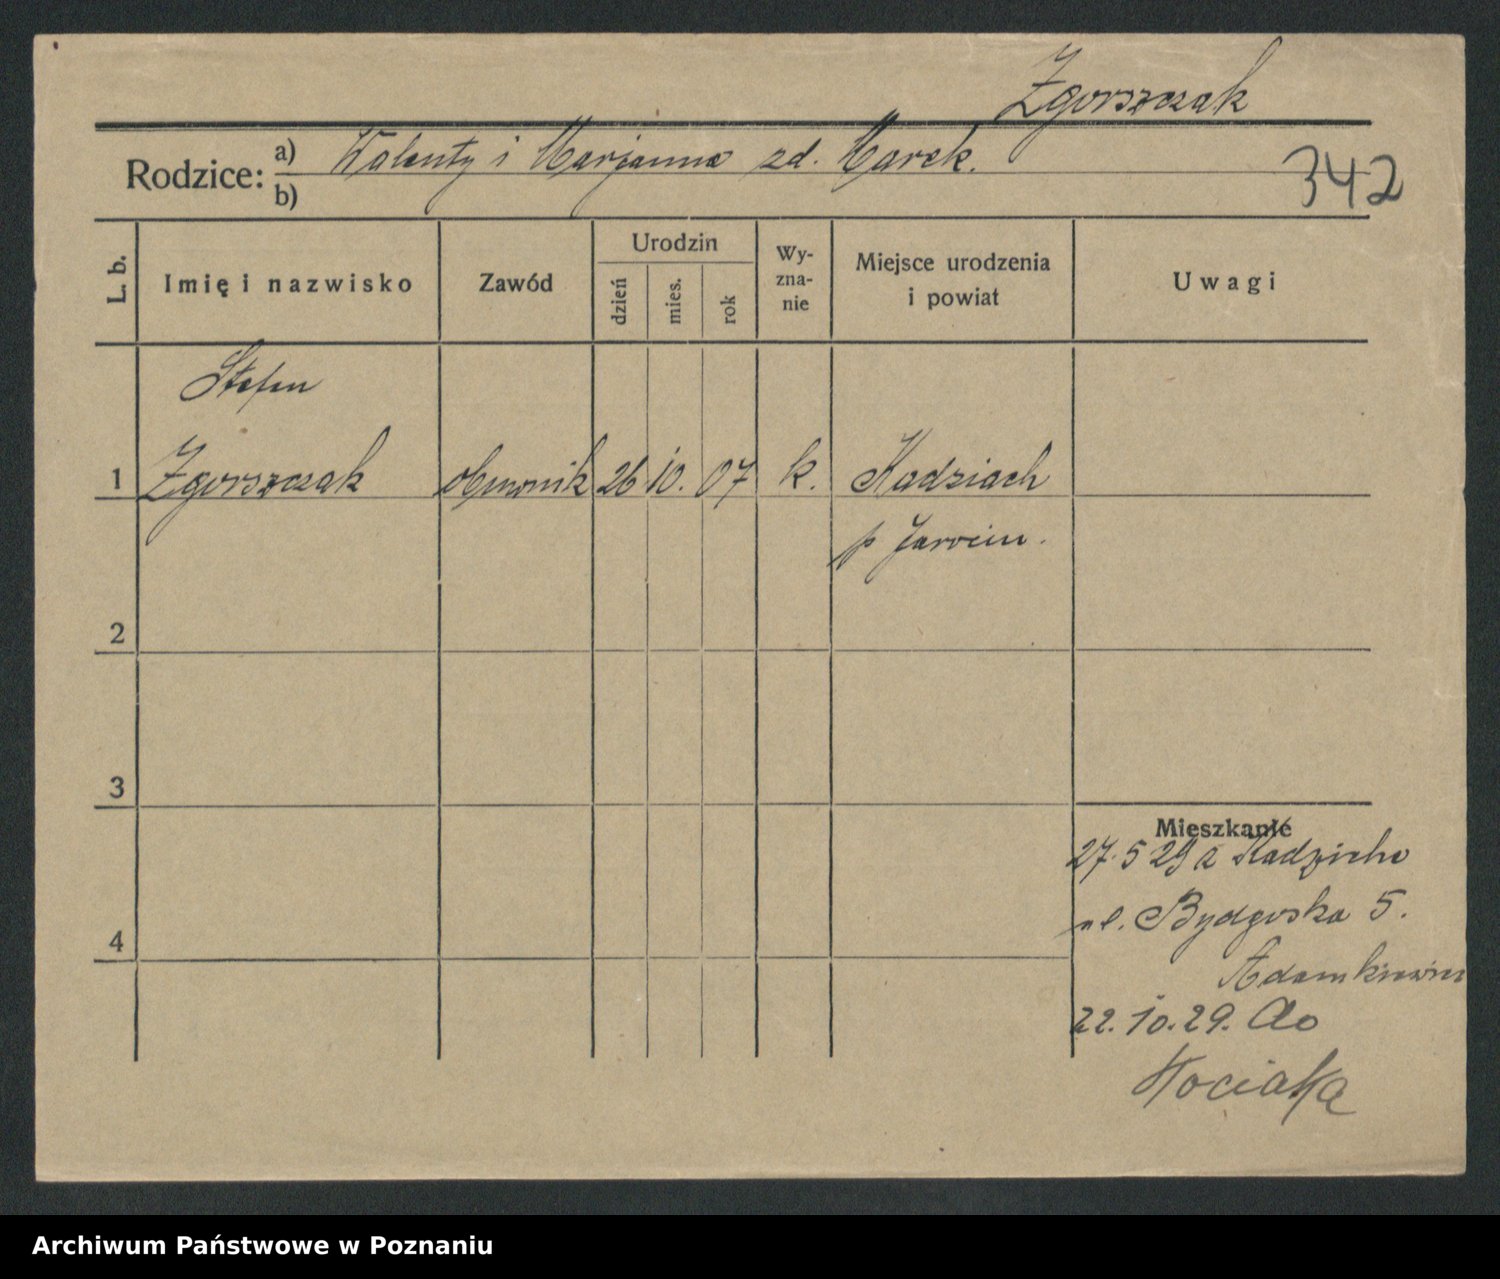 Zgorszczak
Rodzice: a) Walenty i Marjanna zd. Marek.
b)
342
L. b.
Imię i nazwisko
Zawód
Urodzin
dzień
mies.
rok
Wy-
zna-
nie
Miejsce urodzenia
i powiat
Uwagi
Stefan
1 Zgorszczak 26 10. 07 k. Kadziach
p Jarocin.
2
3
4
Mieszkanie
27. 5 29 z
ul. Bydgoska 5.
22. 10. 29. do
Kociałka
Archiwum Państwowe w Poznaniu